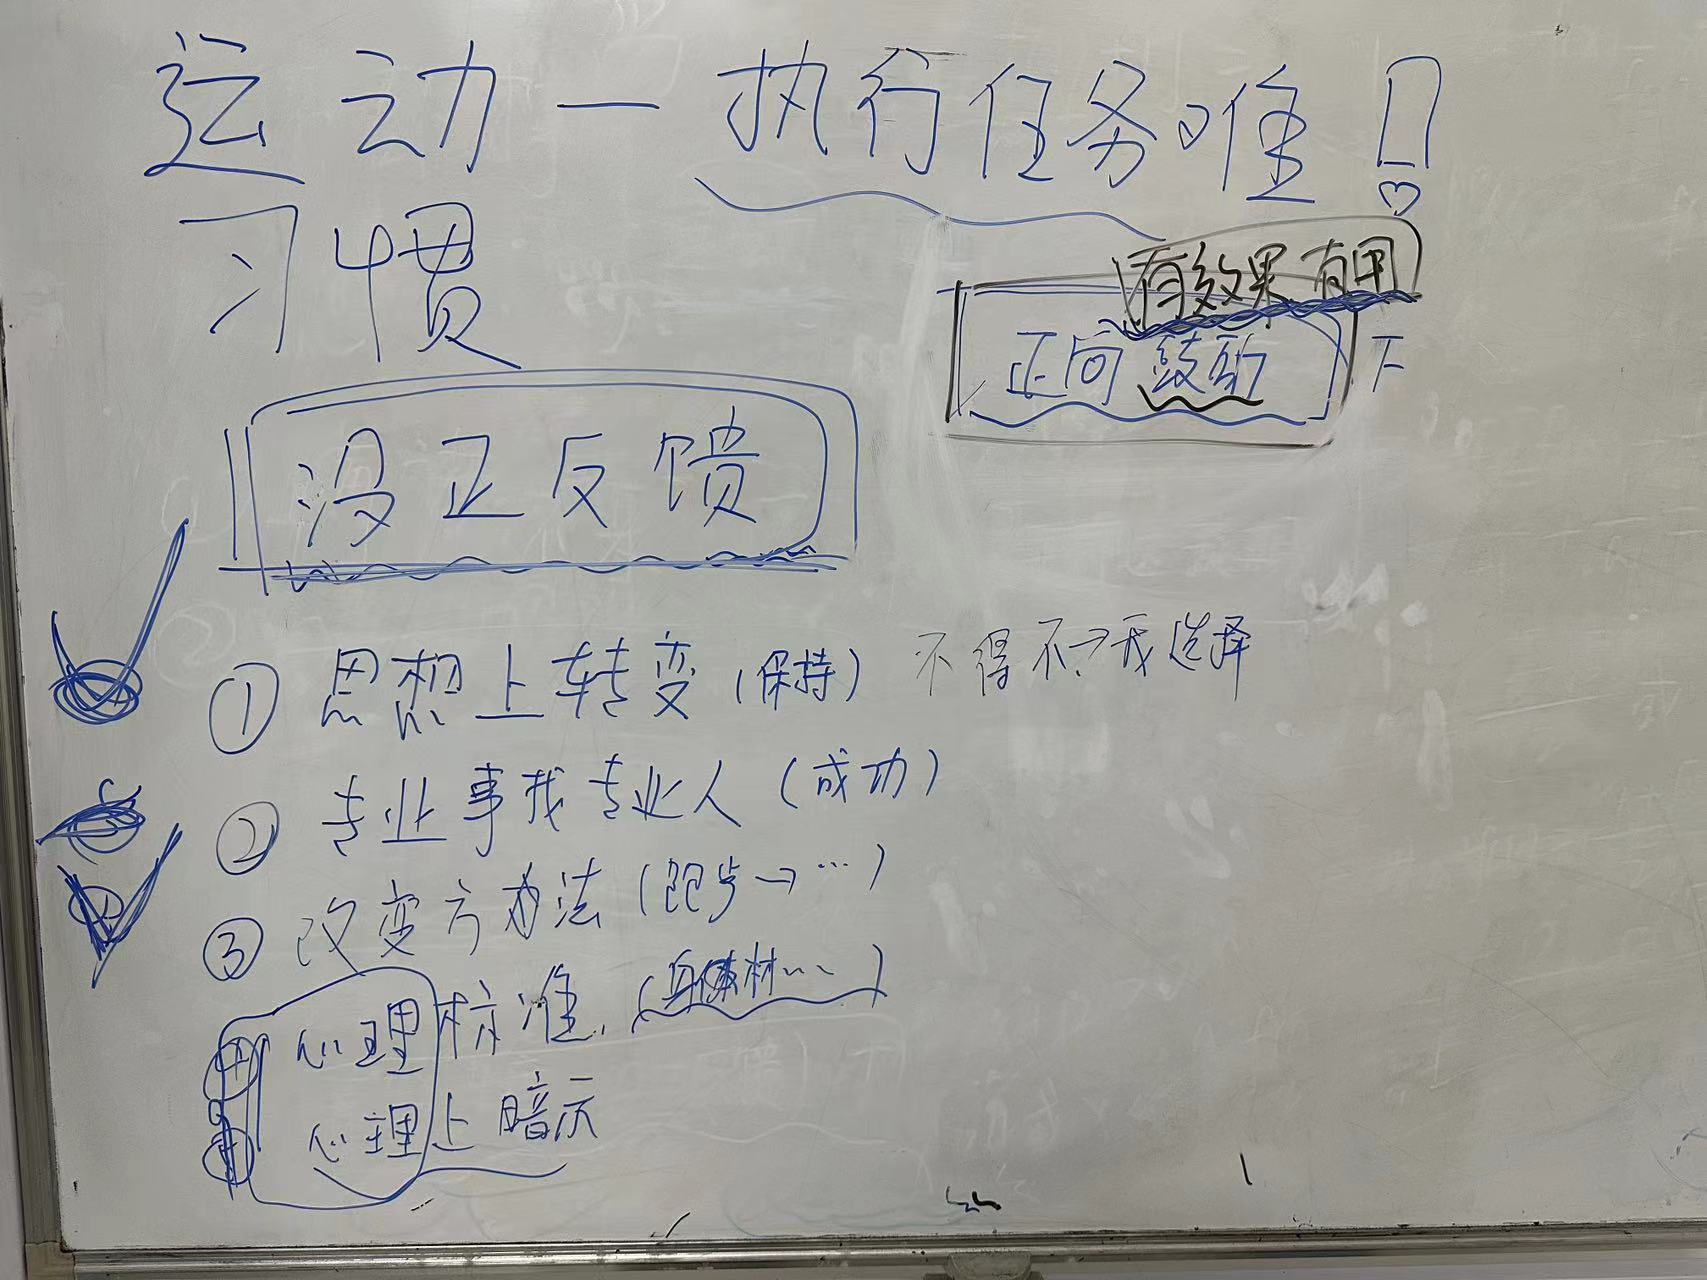 运动一执行任务难!
习惯
有效果 有用
正向鼓励 下
没正反馈
① 思想上转变(保持) 不得不→我选择
② 专业事找专业人(成功)
③ 改变方办法(跑步→…)
④ 心理标准.(身体材…)
心理上暗示